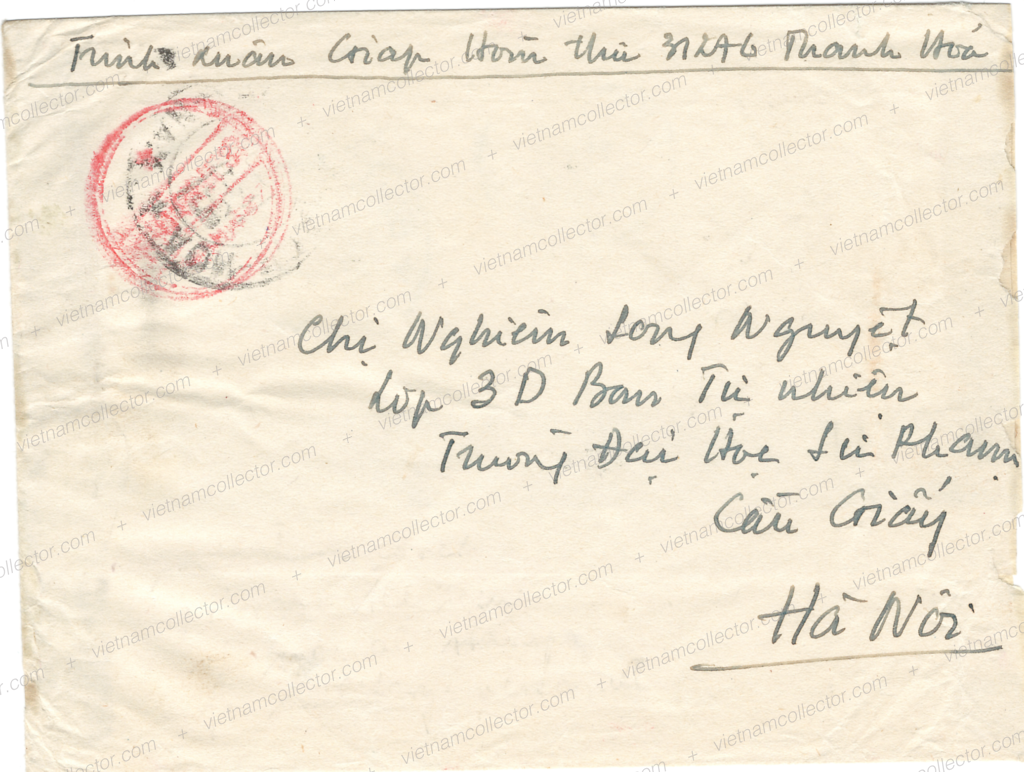 Trinh Xuân Giap Hòm thư 3112A6 Thanh Hoá
Chị Nghiêm Song Nguyệt
Lớp 3D Ban Tự nhiên
Trường Đại Học Sư Phạm
Cầu Giấy
Hà Nôi
vietnamcollector.com